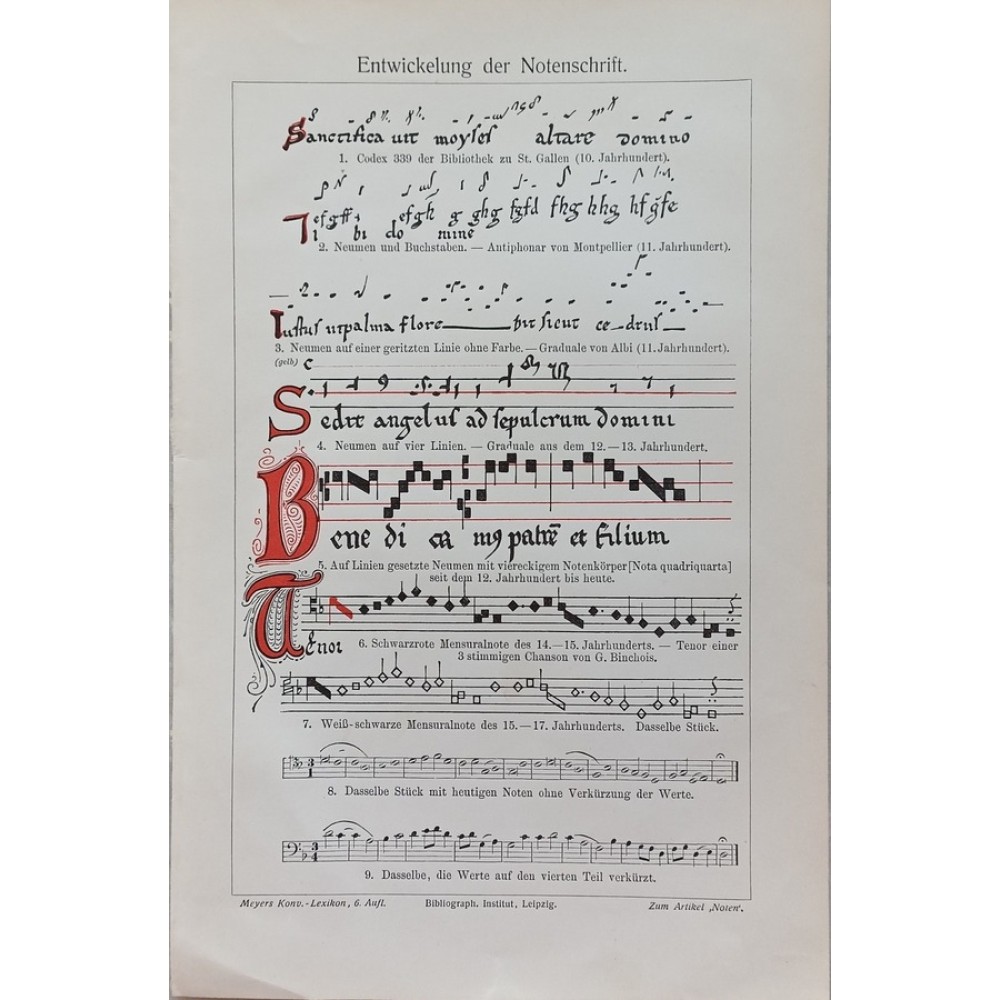 Entwickelung der Notenschrift.
Sanctifica uit moyses altare domino
1. Codex 339 der Bibliothek zu St. Gallen (10. Jahrhundert).
efgh g ghg fhg hhg
Ti bi do mine
2. Neumen und Buchstaben. — Antiphonar von Montpellier (11. Jahrhundert).
Iustus utpalma flore bit sicut ce-drus
3. Neumen auf einer geritzten Linie ohne Farbe. — Graduale von Albi (11. Jahrhundert).
(gelb) C
Sedit angelus ad sepulcrum domini
4. Neumen auf vier Linien. — Graduale aus dem 12. — 13. Jahrhundert.
Bene di ca mꝰ patrē et filium
5. Auf Linien gesetzte Neumen mit viereckigem Notenkörper [Nota quadriquarta]
seit dem 12. Jahrhundert bis heute.
Tenor
6. Schwarzrote Mensuralnote des 14. — 15. Jahrhunderts. — Tenor einer
3 stimmigen Chanson von G. Binchois.
7. Weiß-schwarze Mensuralnote des 15. — 17. Jahrhunderts. Dasselbe Stück.
3
1
8. Dasselbe Stück mit heutigen Noten ohne Verkürzung der Werte.
3
4
9. Dasselbe, die Werte auf den vierten Teil verkürzt.
Meyers Konv.-Lexikon, 6. Aufl. Bibliograph. Institut, Leipzig. Zum Artikel ‚Noten‘.